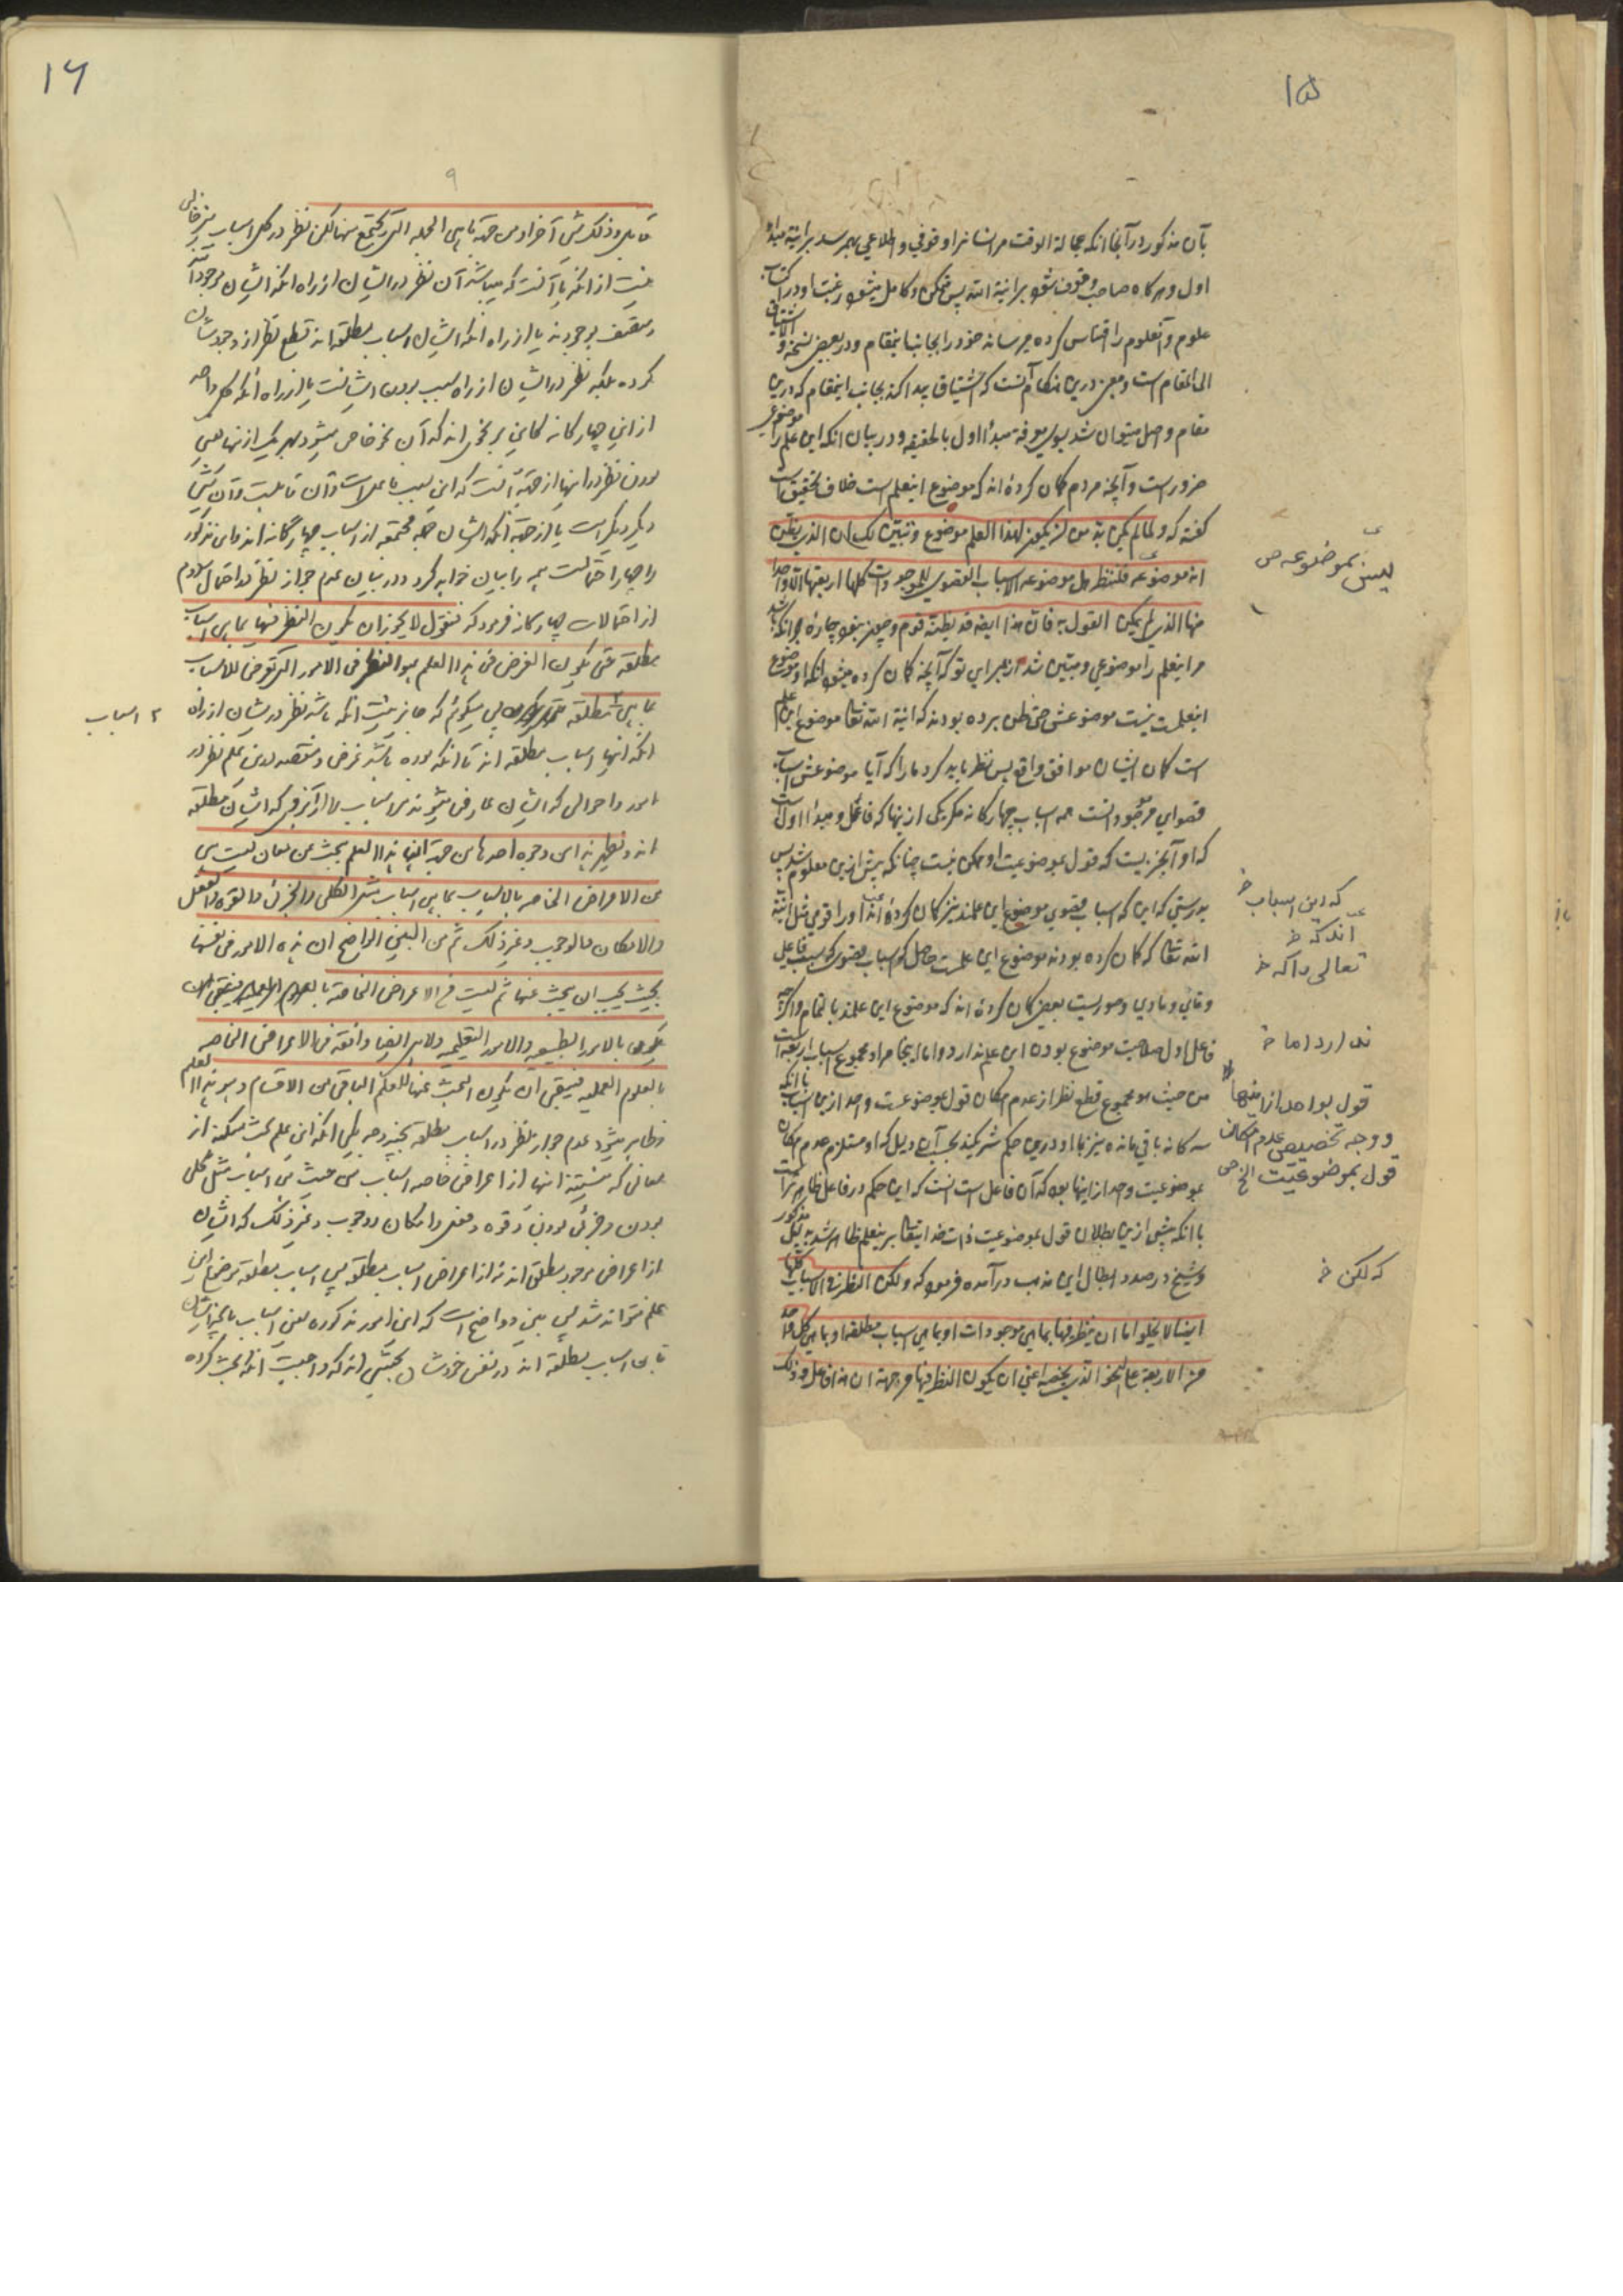 ۱۵
بآن مذکور در آنجا انکه عجالة الوقت مر انسانرا وقوفی و اطلاعی بهمرسد بر انیة مبداء
اول و هرکاه صاحب وقوف شود بر انیة الله پس متمکن و کامل میشود رغبت او در اکتساب
علوم و آنعلوم را اقتباس کرده میرساند خود را بجانب اینمقام و در بعضی نسخه و الاشتیاق
الی المقام است و معنی درین هنکام آنست که اشتیاق پیدا کند بجانب اینمقام که درین
مقام واصل میتوان شد بسوی معرفة مبداء اول بالحقیقه و در بیان انکه این علم را موضوعی
ضرور است و آنچه مردم کمان کرده اند که موضوع اینعلم است خلاف تحقیق است
کفته که و لما لم یکن بد من ان یکون لهذا العلم موضوع و تبین لک ان الذی یظن
انه موضوعه فلننظر هل موضوعه الاسباب القصوی للموجودات کلها اربعتها الا واحدا
منها الذی لم یمکن القول به فان هذا ایضا قد یظنه قوم و چون نبود چارهٔ جز انکه باشد
مر اینعلم را موضوعی و مبین شد از برای تو که آنچه کمان کرده میشود انکه او موضوع
اینعلمست نیست موضوعش حتی ظن برده بودند که انیة الله تعالی موضوع این علم
است کمان ایشان موافق واقع پس نظر باید کرد مارا که آیا موضوعش اسباب
قصوای موجوداتست همه اسباب چهارکانه مکر یکی از ینها که فاعل و مبداء اول است
که او آنچیزیست که قول بموضوعیت او ممکن نیست چنانکه پیش ازین معلوم شد پس
بدرستی که این که اسباب قصوی موضوع این علمند نیز کمان کرده اند او را قومی مثل انیة
الله تعالی که کمان کرده بودند موضوع این علمست حاصل که اسباب قصوی که سبب فاعلی
و غائی و مادی و صوریست بعضی کمان کرده اند که موضوع این علمند بالتمام و اکرچه
فاعل اول صلاحیت موضوع بودن این علم ندارد و اما اینجا مراد مجموع اسباب اربعه است
من حیث هو مجموع قطع نظر از عدم امکان قول بموضوعیت واحد ازین اسباب با انکه
سه کانه باقی مانده نیز با او درین حکم شریکند بحسب آن دلیل که او مستلزم عدم امکان
بموضوعیت واحد از اینها بود که آن فاعل است انست که این حکم در فاعل ظاهر تر است
با انکه پیش ازین بطلان قول بموضوعیت ذات خدایتعالی بر ینعلم ظاهر شد بدلیل مذکور
و شیخ در صدد ابطال این مذهب در آمده فرموده که و لکن النظر فی الاسباب کلها
ایضا لا یخلو اما ان ینظر فیها بما هی موجودات او بما هی اسباب مطلقة او بما هی کل واحد
من الاربعة علی النحو الذی یخصه اعنی ان یکون النظر فیها من جهة ان هذا فاعل و ذلک
لیس بموضوعه ص
که این اسباب خ
اند که خ
تعالی را که خ
ندارد اما خ
قول بواحد از اینها
و وجه تخصیص عدم امکان
قول بموضوعیت الخ ص
که لکن خ
۱۶
۹
قابل و ذلک شیء آخر او من جهة ما هی الجملة التی تجتمع منها لیکن نظر در کل اسباب نیز خالی
نیست از انکه یا آنست که میباشد آن نظر در ایشان از راه انکه ایشان موجوداند
و متصف بوجودند یا از راه انکه ایشان اسباب مطلقه اند قطع نظر از وجودشان
کرده بلکه نظر در ایشان از راه سبب بودن ایشانست یا از راه انکه کل واحد
از این چهارکانه کاین بر نحوی اند که آن نحو خاص میشود بهر یک از ینها یعنی
بودن نظر در اینها از جهة انست که این سبب فاعل است و آن قابلست و آن شیء
دیکر دیکر است یا از جهة انکه ایشان جمله مجتمعه از اسباب چهارکانه اند و این مذکور
را چهار احتمالست همه را بیان خواهد کرد و در بیان عدم جواز نظر در احتمال دوم
از احتمالات چهارکانه فرمود که فنقول لا یجوز ان یکون النظر فیها بما هی اسباب
مطلقة حتی یکون الغرض فی هذا العلم هو النظر فی الامور التی تعرض للاسباب
بما هی مطلقة پس میکوئیم که جایز نیست انکه باشد نظر در یشان از راه
۲ اسباب
انکه انها اسباب مطلقه اند تا انکه بوده باشد غرض و مقصد درین علم نظر در
امور و احوالی که ایشان عارض میشوند مر اسباب را از آنرو که ایشان مطلقه
اند و یظهر هذا من وجوه احدها من جهة ان هذا العلم یبحث عن معان لیست هی
من الاعراض الخاصة بالاسباب بما هی اسباب مثل الکلی و الجزئی و القوة و الفعل
و الامکان و الوجوب و غیر ذلک ثم من البین الواضح ان هذه الامور فی نفسها
بحیث یجب ان یبحث عنها ثم لیست من الاعراض الخاصة
بالامور الطبیعیه و الامور التعلیمیه و لا هی ایضا واقعة فی الاعراض الخاصه
بالعلوم العملیه فیبقی ان یکون البحث عنها للعلم الباقی من الاقسام و هو هذا العلم
و ظاهر میشود عدم جواز نظر در اسباب مطلقه بچند وجه یکی انکه این علم بحث میکند از
معانی که نیستند انها از اعراض خاصه اسباب من حیث هی اسباب مثل کلی
بودن و جزئی بودن و قوه و فعل و امکان و وجوب و غیر ذلک که ایشان
از اعراض موجود مطلق اند نه از اعراض اسباب مطلقه پس اسباب مطلقه موضوع این
علم نتواند شد پس بین و واضح است که این امور مذکوره
اسباب مطلقه اند در نفس خودشان بحیثی اند که واجبست انکه بحث کرده